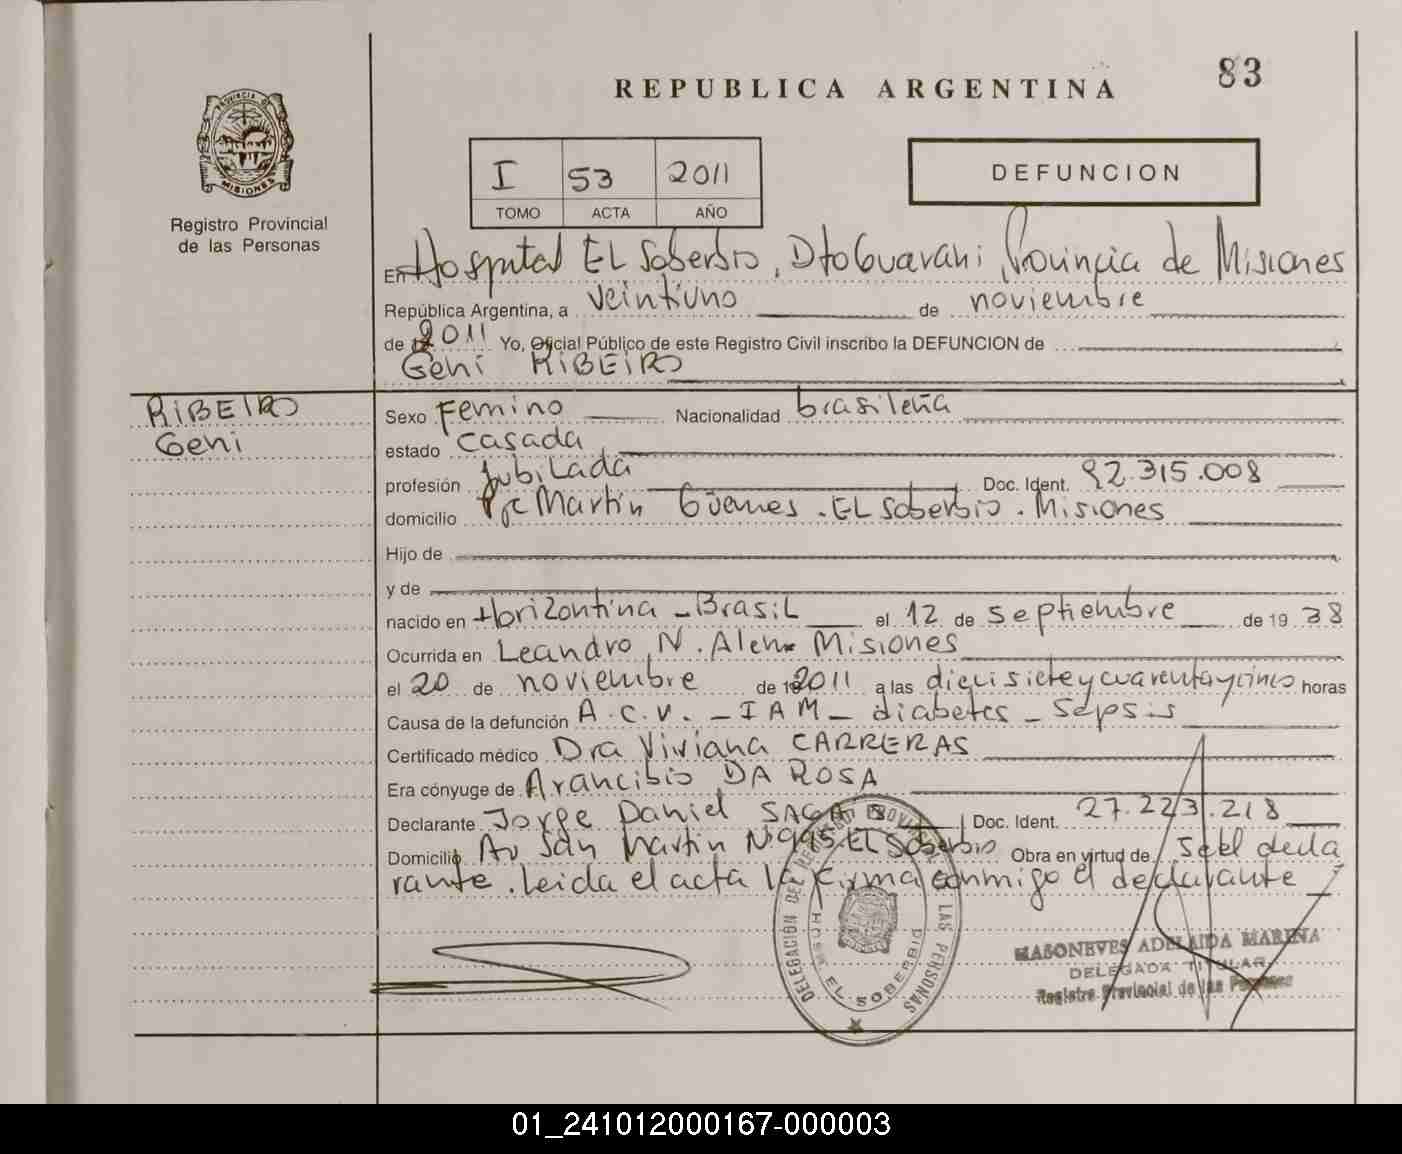 83
REPUBLICA ARGENTINA
PROVINCIA DE
MISIONES
Registro Provincial
de las Personas
I 53 2011
TOMO ACTA AÑO
DEFUNCION
En Hospital EL Soberbio, Dto Guarani, Provincia de Misiones
República Argentina, a veintiuno de noviembre
de 2011 Yo, Oficial Público de este Registro Civil inscribo la DEFUNCION de
Geni RIBEIRO
RIBEIRO
Geni
Sexo Femino Nacionalidad brasileña
estado casada
profesión Jubilada Doc. Ident. 92.315.008
domicilio Pje Martin Güemes. EL Soberbio. Misiones
Hijo de
y de
nacido en Horizontina - Brasil el 12 de septiembre de 19 38
Ocurrida en Leandro N. Alem Misiones
el 20 de noviembre de 2011 a las diecisiete y cuarenta y cinco horas
Causa de la defunción A.C.V. - IAM - diabetes - Sepsis
Certificado médico Dra Viviana CARRERAS
Era cónyuge de Arancibio DA ROSA
Declarante Jorge Daniel Doc. Ident. 27.223.218
Domicilio Av San Martin Nº 995. EL Soberbio Obra en virtud de ser el decla
rante. Leida el acta la firma conmigo el declarante
DELEGACION DEL REGISTRO PROVINCIAL DE LAS PERSONAS
EL SOBERBIO
MASONEVES ADELAIDA MARINA
DELEGADA TITULAR
Registro Provincial de las Personas
01_241012000167-000003